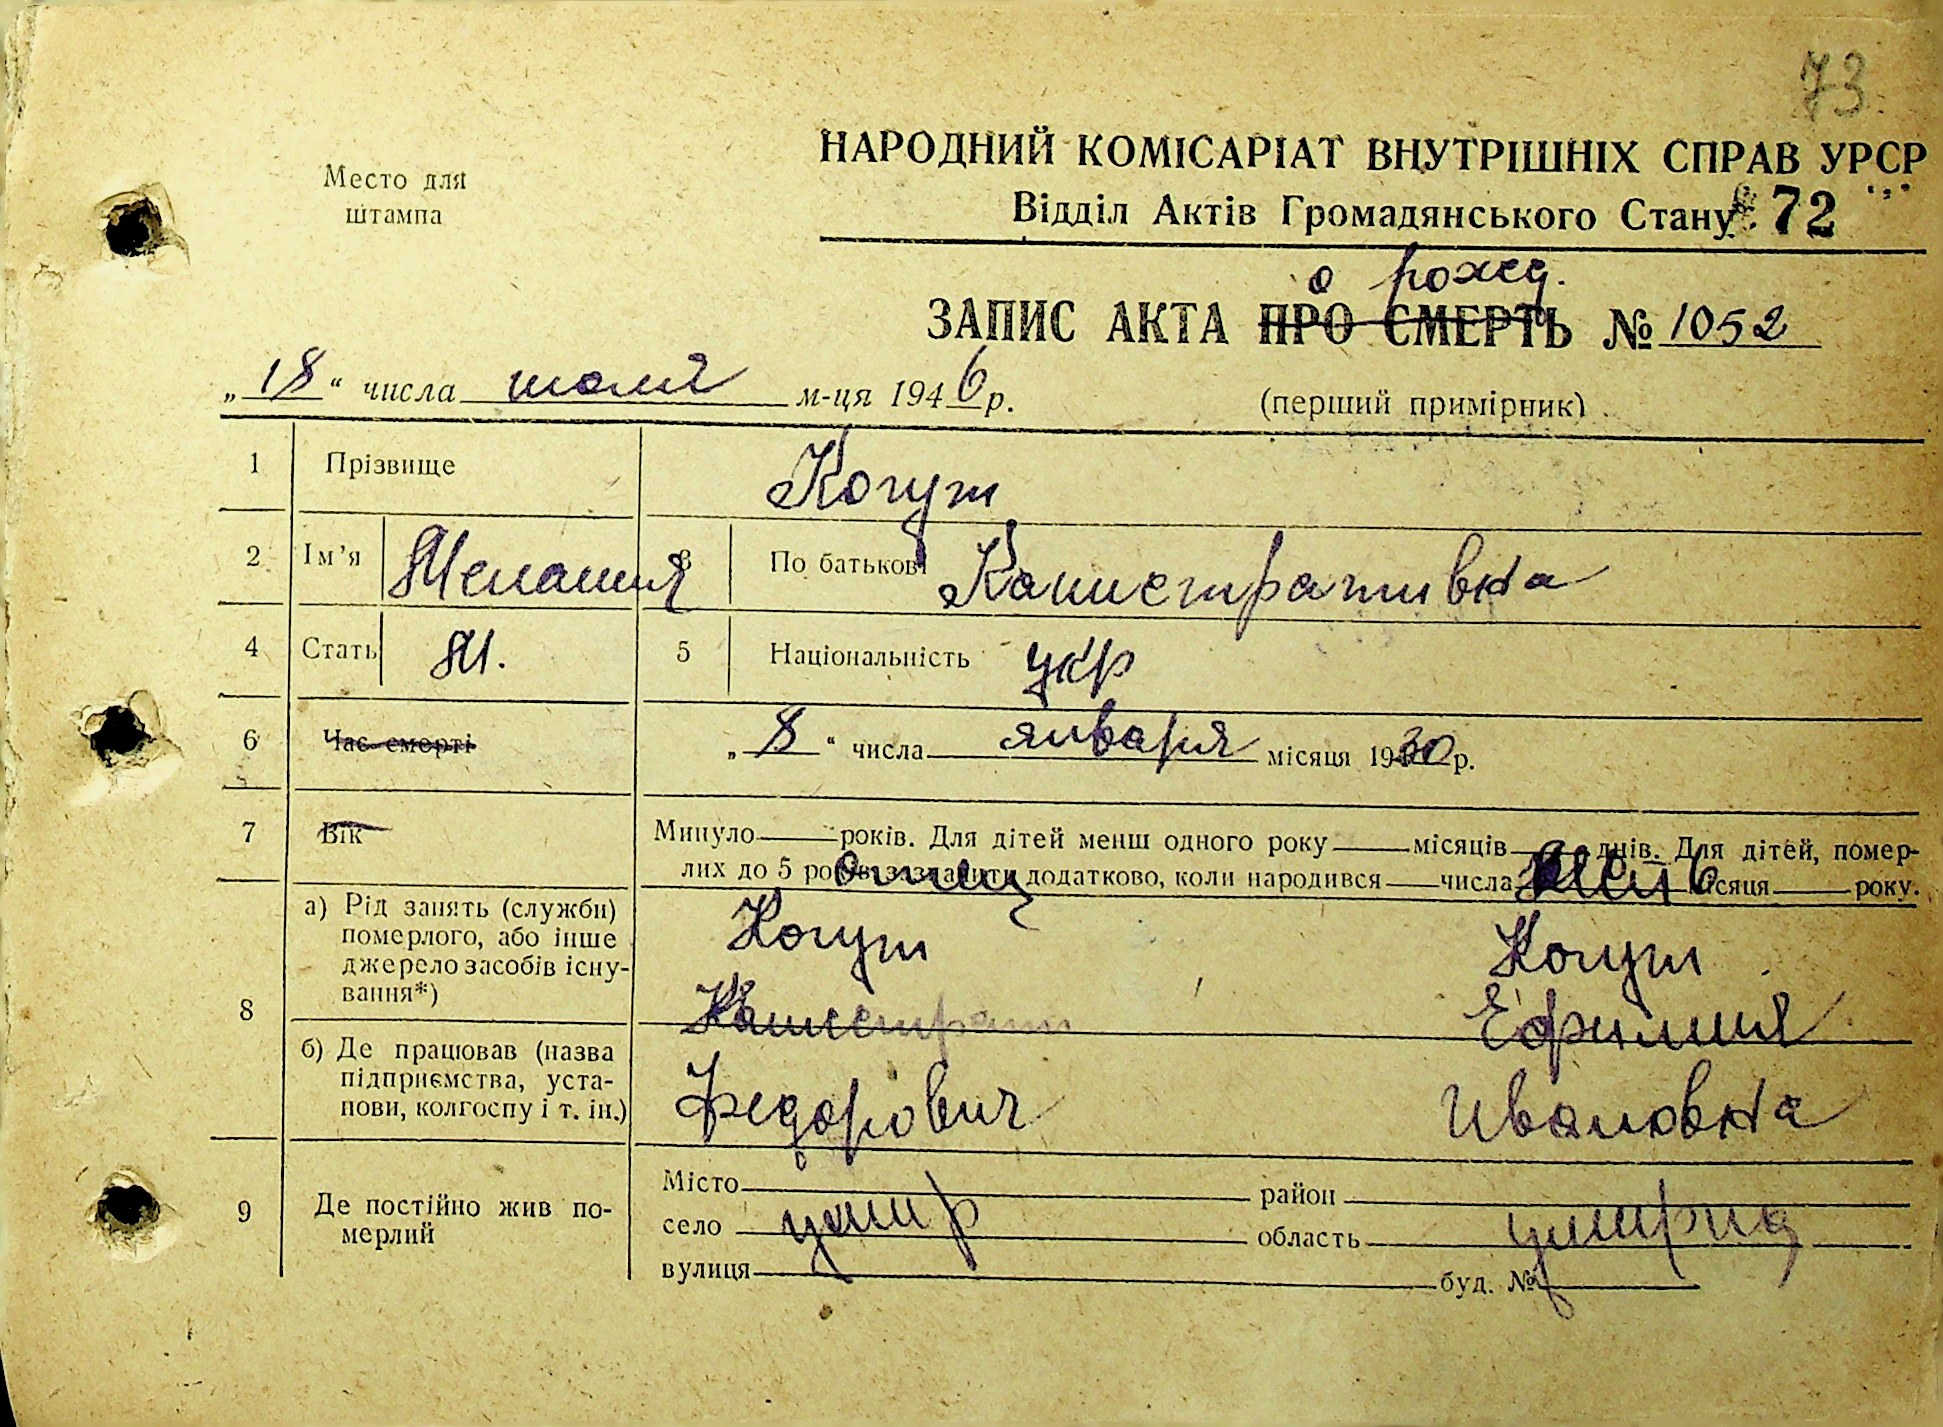 73
Место для
штампа
НАРОДНИЙ КОМІСАРІАТ ВНУТРІШНІХ СПРАВ УРСР
Відділ Актів Громадянського Стану 72
о рожд.
ЗАПИС АКТА ПРО СМЕРТЬ № 1052
„18“ числа июля м-ця 1946 р.
(перший примірник)
1 Прізвище Когут
2 Ім’я Мелания 3 По батькові Калистратовна
4 Стать Ж. 5 Національність укр
6 Час смерті „8“ числа января місяця 1930 р.
7 Вік Минуло года років. Для дітей менш одного року місяців днів. Для дітей, помер-
лих до 5 років зазначити додатково, коли народився числа місяця року.
отец мать
8 а) Рід занять (служби)
померлого, або інше
джерело засобів існу-
вання*)
Когут Когут
Калистрат
б) Де працював (назва
підприємства, уста-
нови, колгоспу і т. ін.)
Федорович Ивановна
9 Де постійно жив по-
мерлий
Місто район
село область
вулиця буд. №